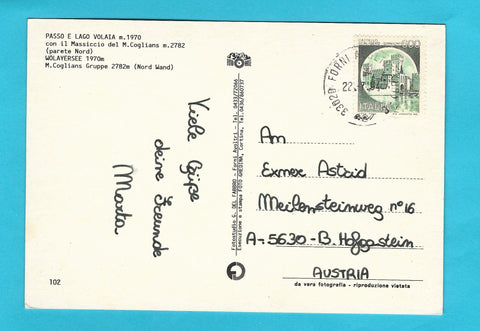 PASSO E LAGO VOLAIA m.1970
con il Massiccio del M.Coglians m.2782
(parete Nord)
WOLAYERSEE 1970m
M.Coglians Gruppe 2782m (Nord Wand)
Viele Grüße
deine Freunde
Marta
102
Fotostudio G. DEL FABBRO - Forni Avoltri - Tel. 0433/72066
Esecuzione e stampa FOTO GHEDINA, Cortina, Tel.
33020 FORNI
ITALIA
Am
Exner Astrid
Meilensteinweg n° 16
A-5630-B. Hofgastein
AUSTRIA
da vera fotografia - riproduzione vietata